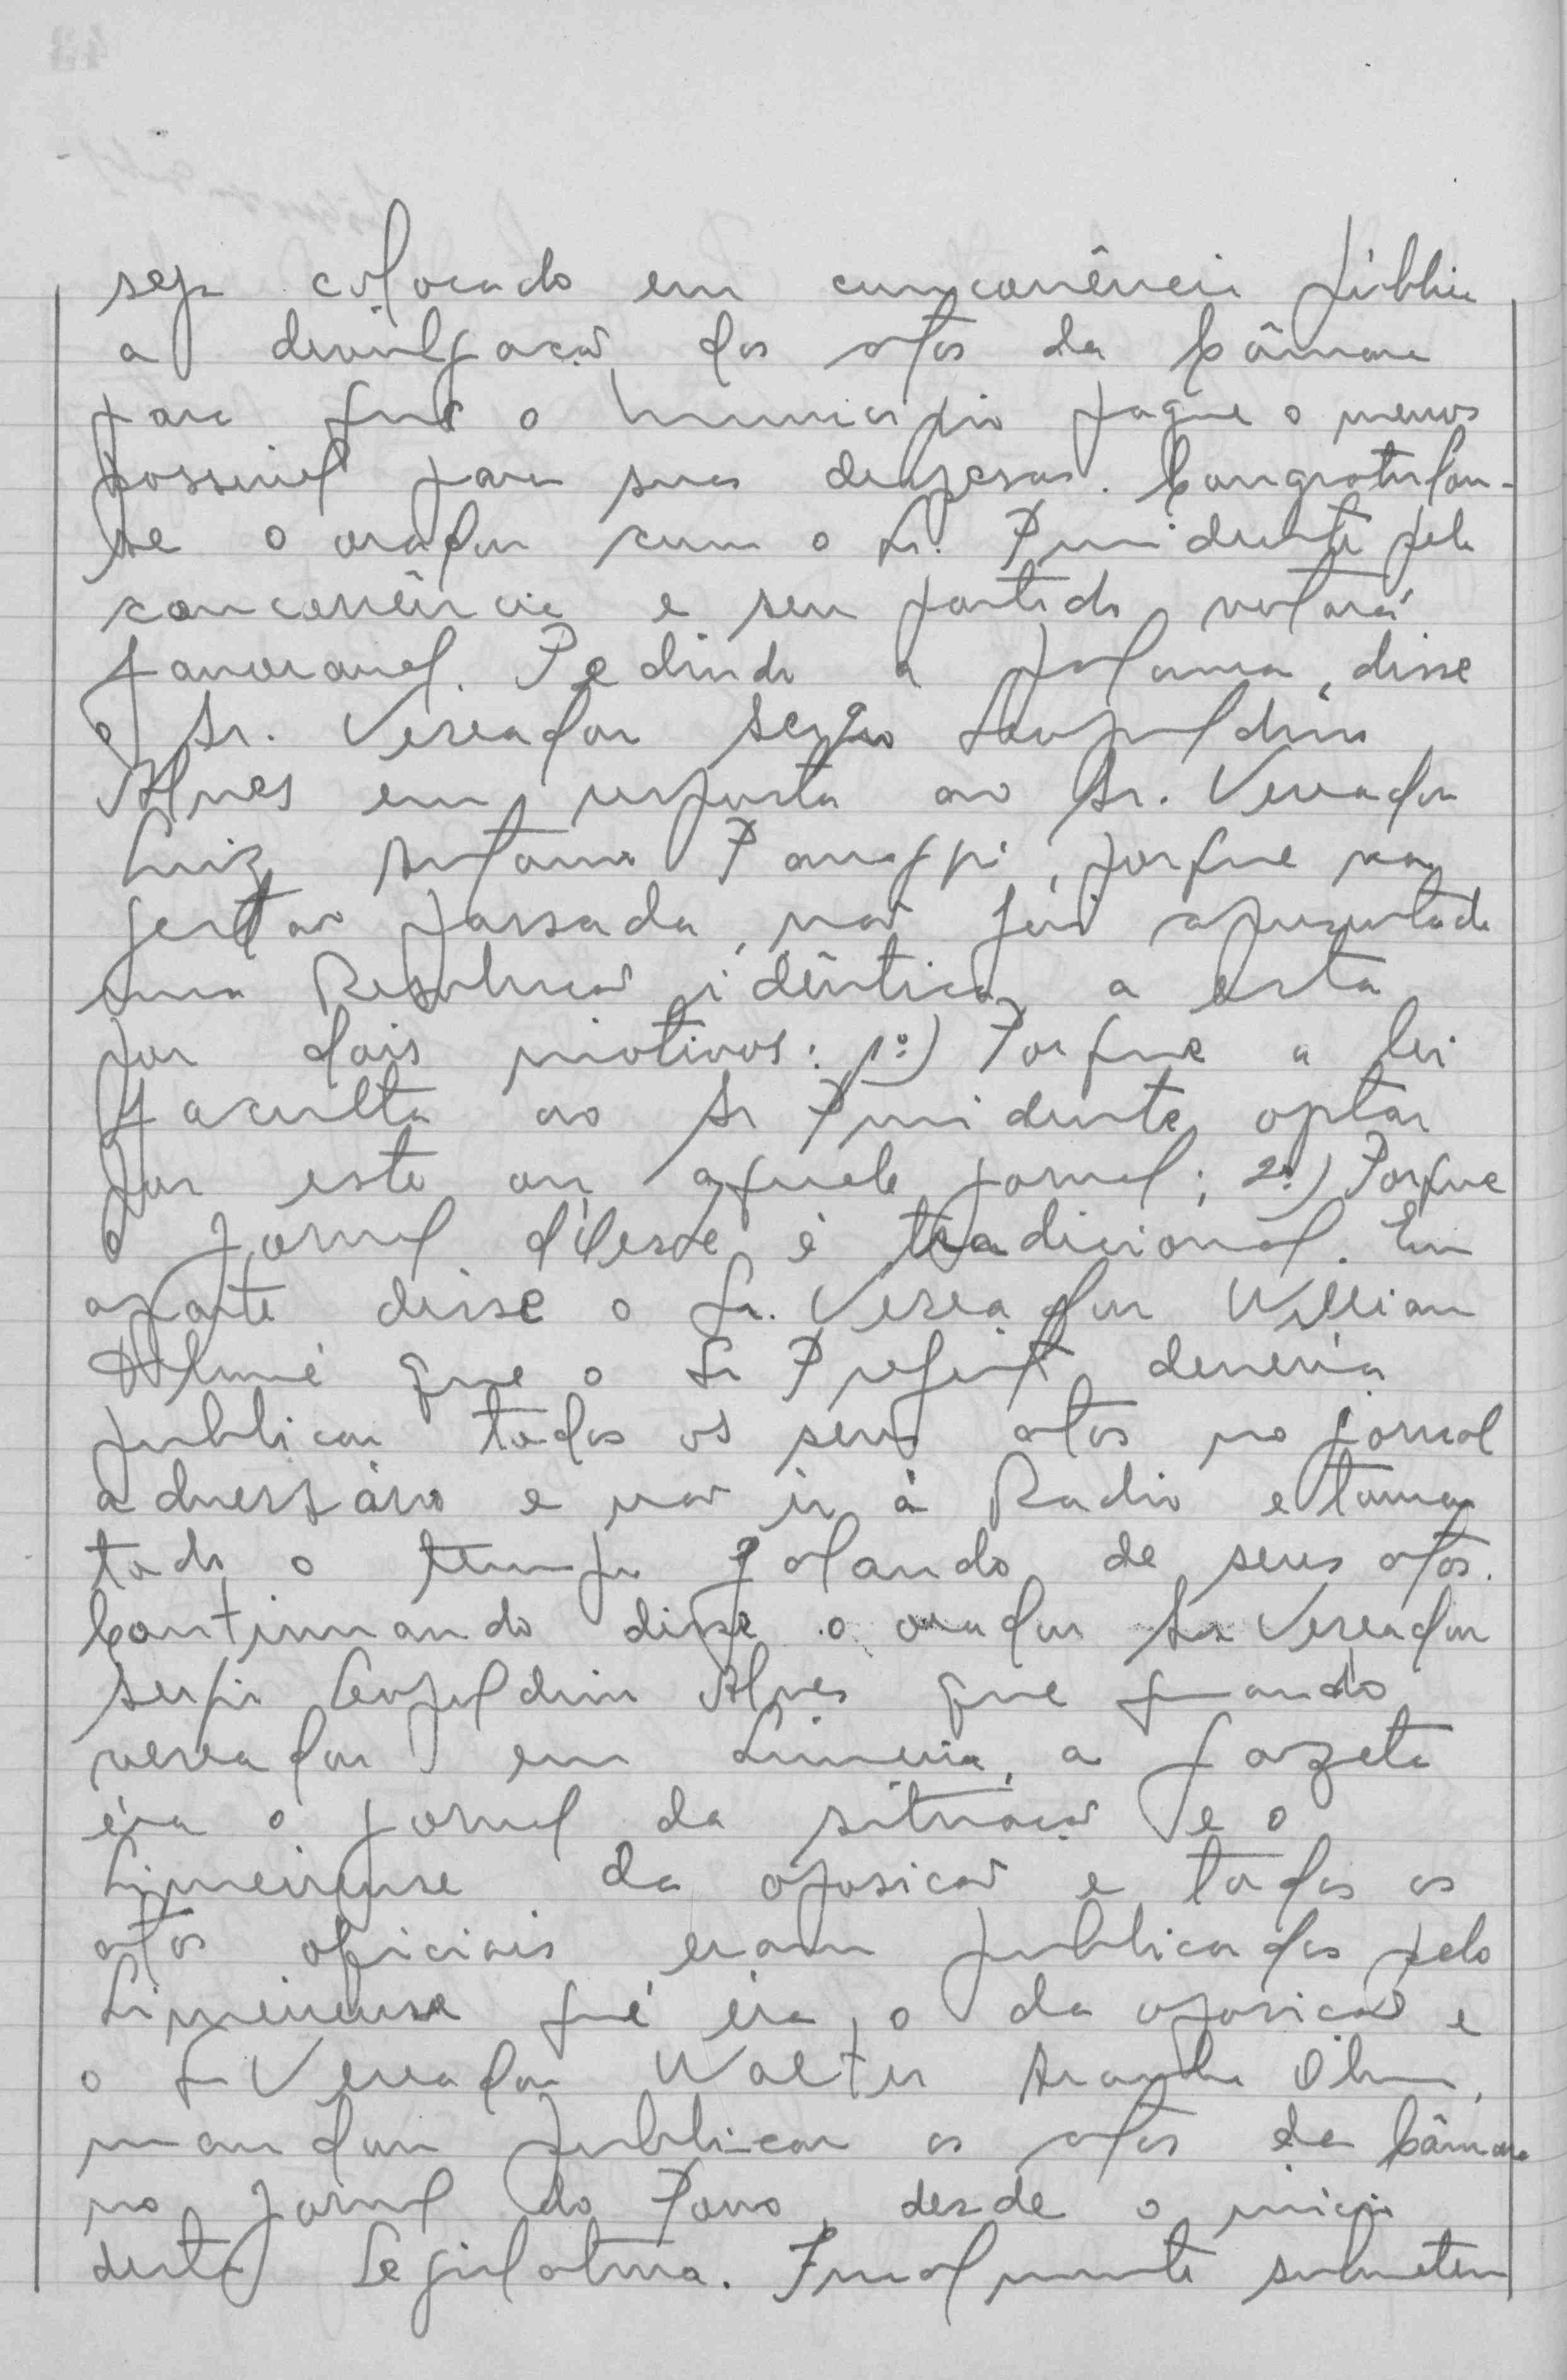 seja colocado em concorrência públic
a divulgação dos atos da Câmara
para que o município pague o menos
possivel para suas despesas. Congratulou-
se o orador com o Sr. Presidente pela
concorrência e seu partido votará
favoravel. Pedindo a palavra, disse
o Sr. Vereador Sergio Leopoldino
Alves em resposta ao Sr. Vereador
Luiz Antonio Panaggi, porque na
gestão passada, não foi apresentada
uma Resolução idêntica a esta
por dois motivos: 1º) Porque a lei
faculta ao Sr Presidente optar
por este ou aquele jornal; 2º) Porque
o jornal d'Oeste é tradicional. Em
aparte disse o Sr. Vereador Willian
que o Sr Prefeito deveria
publicar todos os seus atos no jornal
adversário e não ir à Radio e tomar
todo o tempo falando de seus atos.
Continuando disse o orador Sr Vereador
Sergio Leopoldino Alves que quando
vereador em Limeira, a Gazeta
éra o jornal da situação e o
Limeirense da oposição e todos os
atos oficiais eram publicados pelo
Limeirense que éra o da oposição e
o Sr Vereador Walter
mandou publicar os atos da Câmara
no Jornal do Povo, desde o inicio
desta Legislatura. Finalmente submeteu